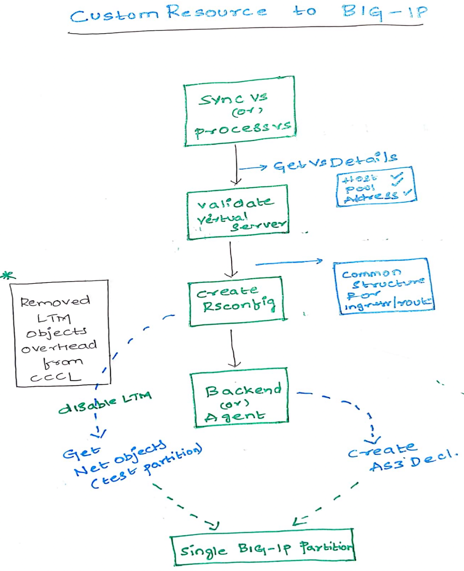 Custom Resource to BIG-IP
Sync VS
(or)
processvs
Get Vs Details
Host ✓
Pool ✓
Address ✓
Validate
Virtual
Server
Create
Rsconfig
Common
Structure
For
ingress/route
*
Removed
LTM
Objects
overhead
from
CCCL
disable LTM
Backend
(or)
Agent
Get
Net Objects
(test partition)
Create
AS3 Decl.
Single BIG-IP Partition